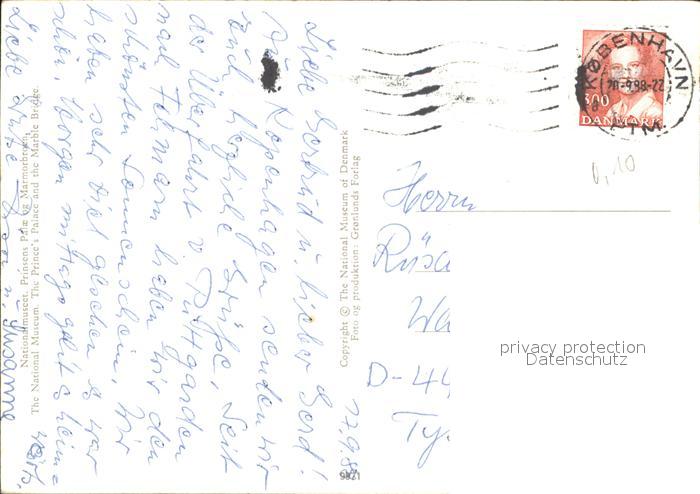 Liebe Gertrud u. lieber Gerd!
Aus Kopenhagen senden wir
euch herzliche Grüße. Seit
der Überfahrt v. Puttgarden
nach Fehmarn haben wir den
schönsten Sonnenschein. Wir
haben sehr viel gesehen es war
schön. Morgen mittag geht's heim=
wärts.
Liebe Grüße
u. Susanne
17.9.8
Nationalmuseet. Prinsens Palæ og Marmorbroen.
The National Museum. The Prince's Palace and the Marble Bridge.
Copyright © The National Museum of Denmark
Foto og produktion: Grønlunds Forlag
9821
KØBENHAVN
20-9.88-22
OMK
300
DANMARK
0,10
Herrn
Rüsc
Wa
D-44
Ty
privacy protection
Datenschutz